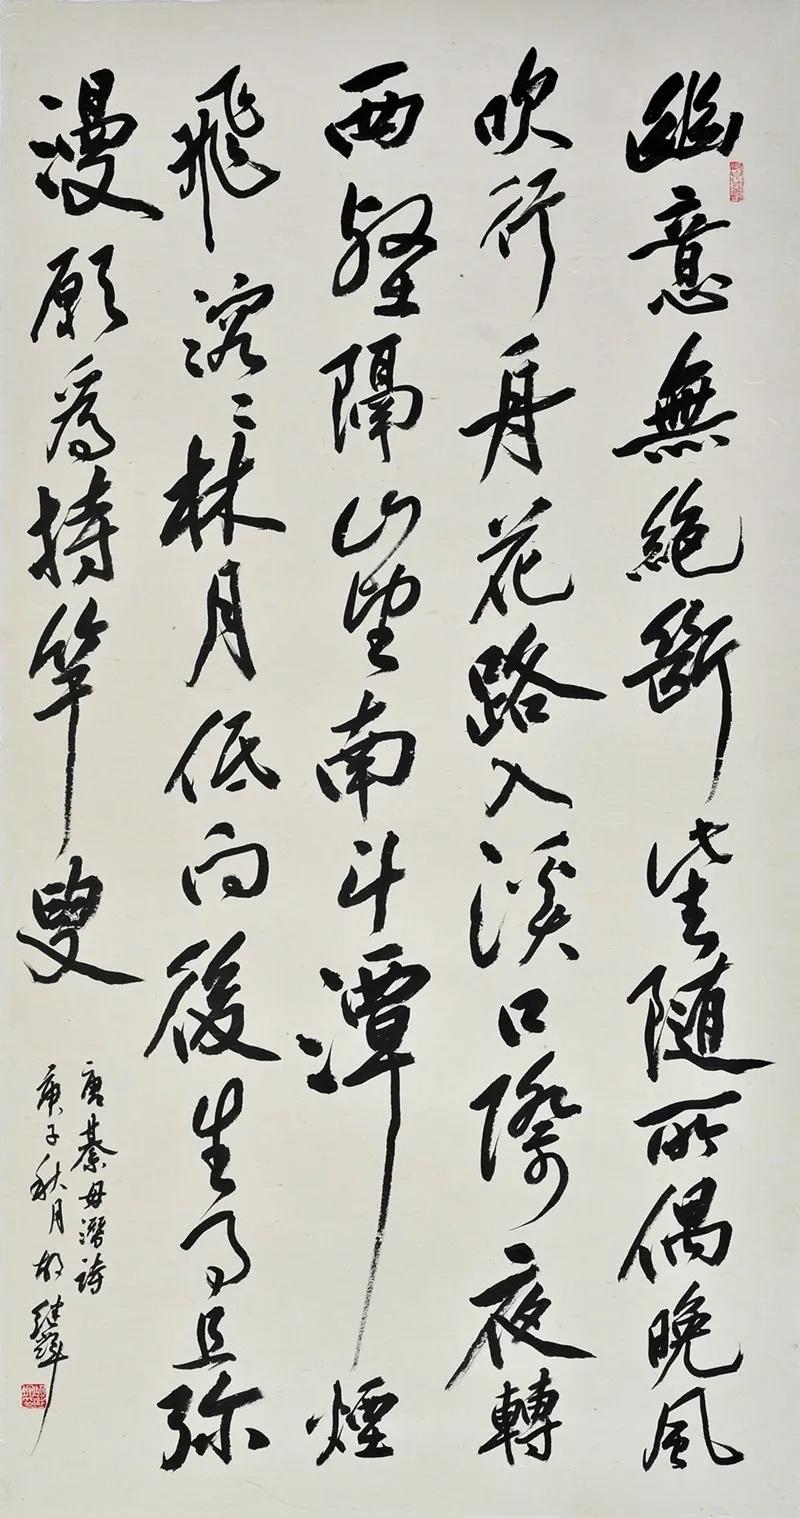 幽意無絕斷此去隨所偶晚風
吹行舟花路入溪口際夜轉
西壑隔山望南斗潭煙
飛溶〻林月低向後生事且弥
漫願為持竿叟
唐綦母潛詩
庚子秋月胡继